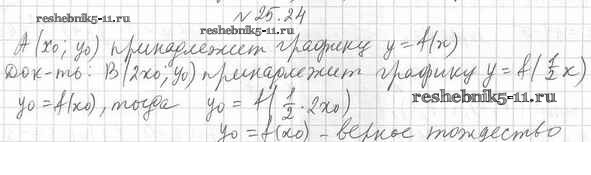 №25.24
reshebnik5-11.ru
reshebnik5-11.ru
A(x₀; y₀) принадлежит графику y = f(x)
Док-ть: B(2x₀; y₀) принадлежит графику y = f(1/2 x)
y₀ = f(x₀), тогда y₀ = f(1/2 · 2x₀)
reshebnik5-11.ru
y₀ = f(x₀) - верное тождество